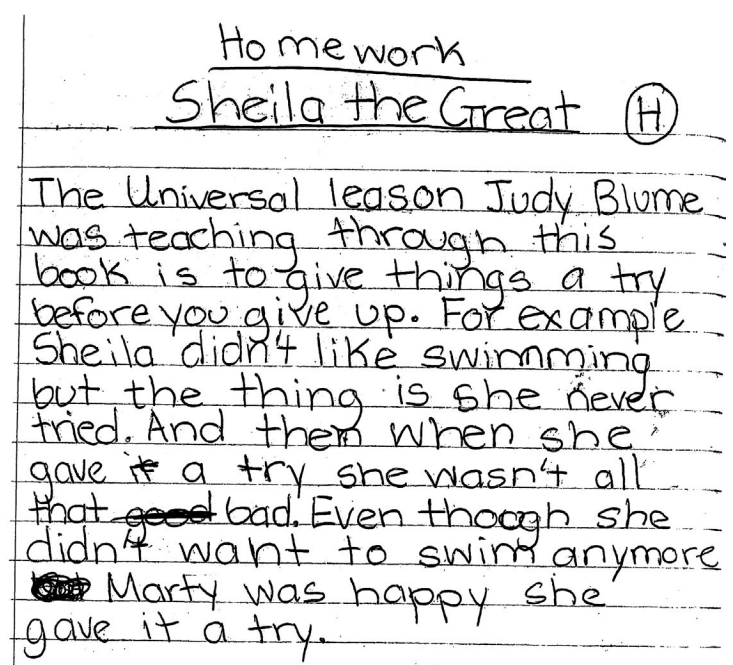 Homework
Sheila the Great H
The Universal leason Judy Blume
was teaching through this
book is to give things a try
before you give up. For example
Sheila didn't like swimming
but the thing is she never
tried. And then when she
gave it a try she wasn't all
that good bad. Even though she
didn't want to swim anymore
Marty was happy she
gave it a try.